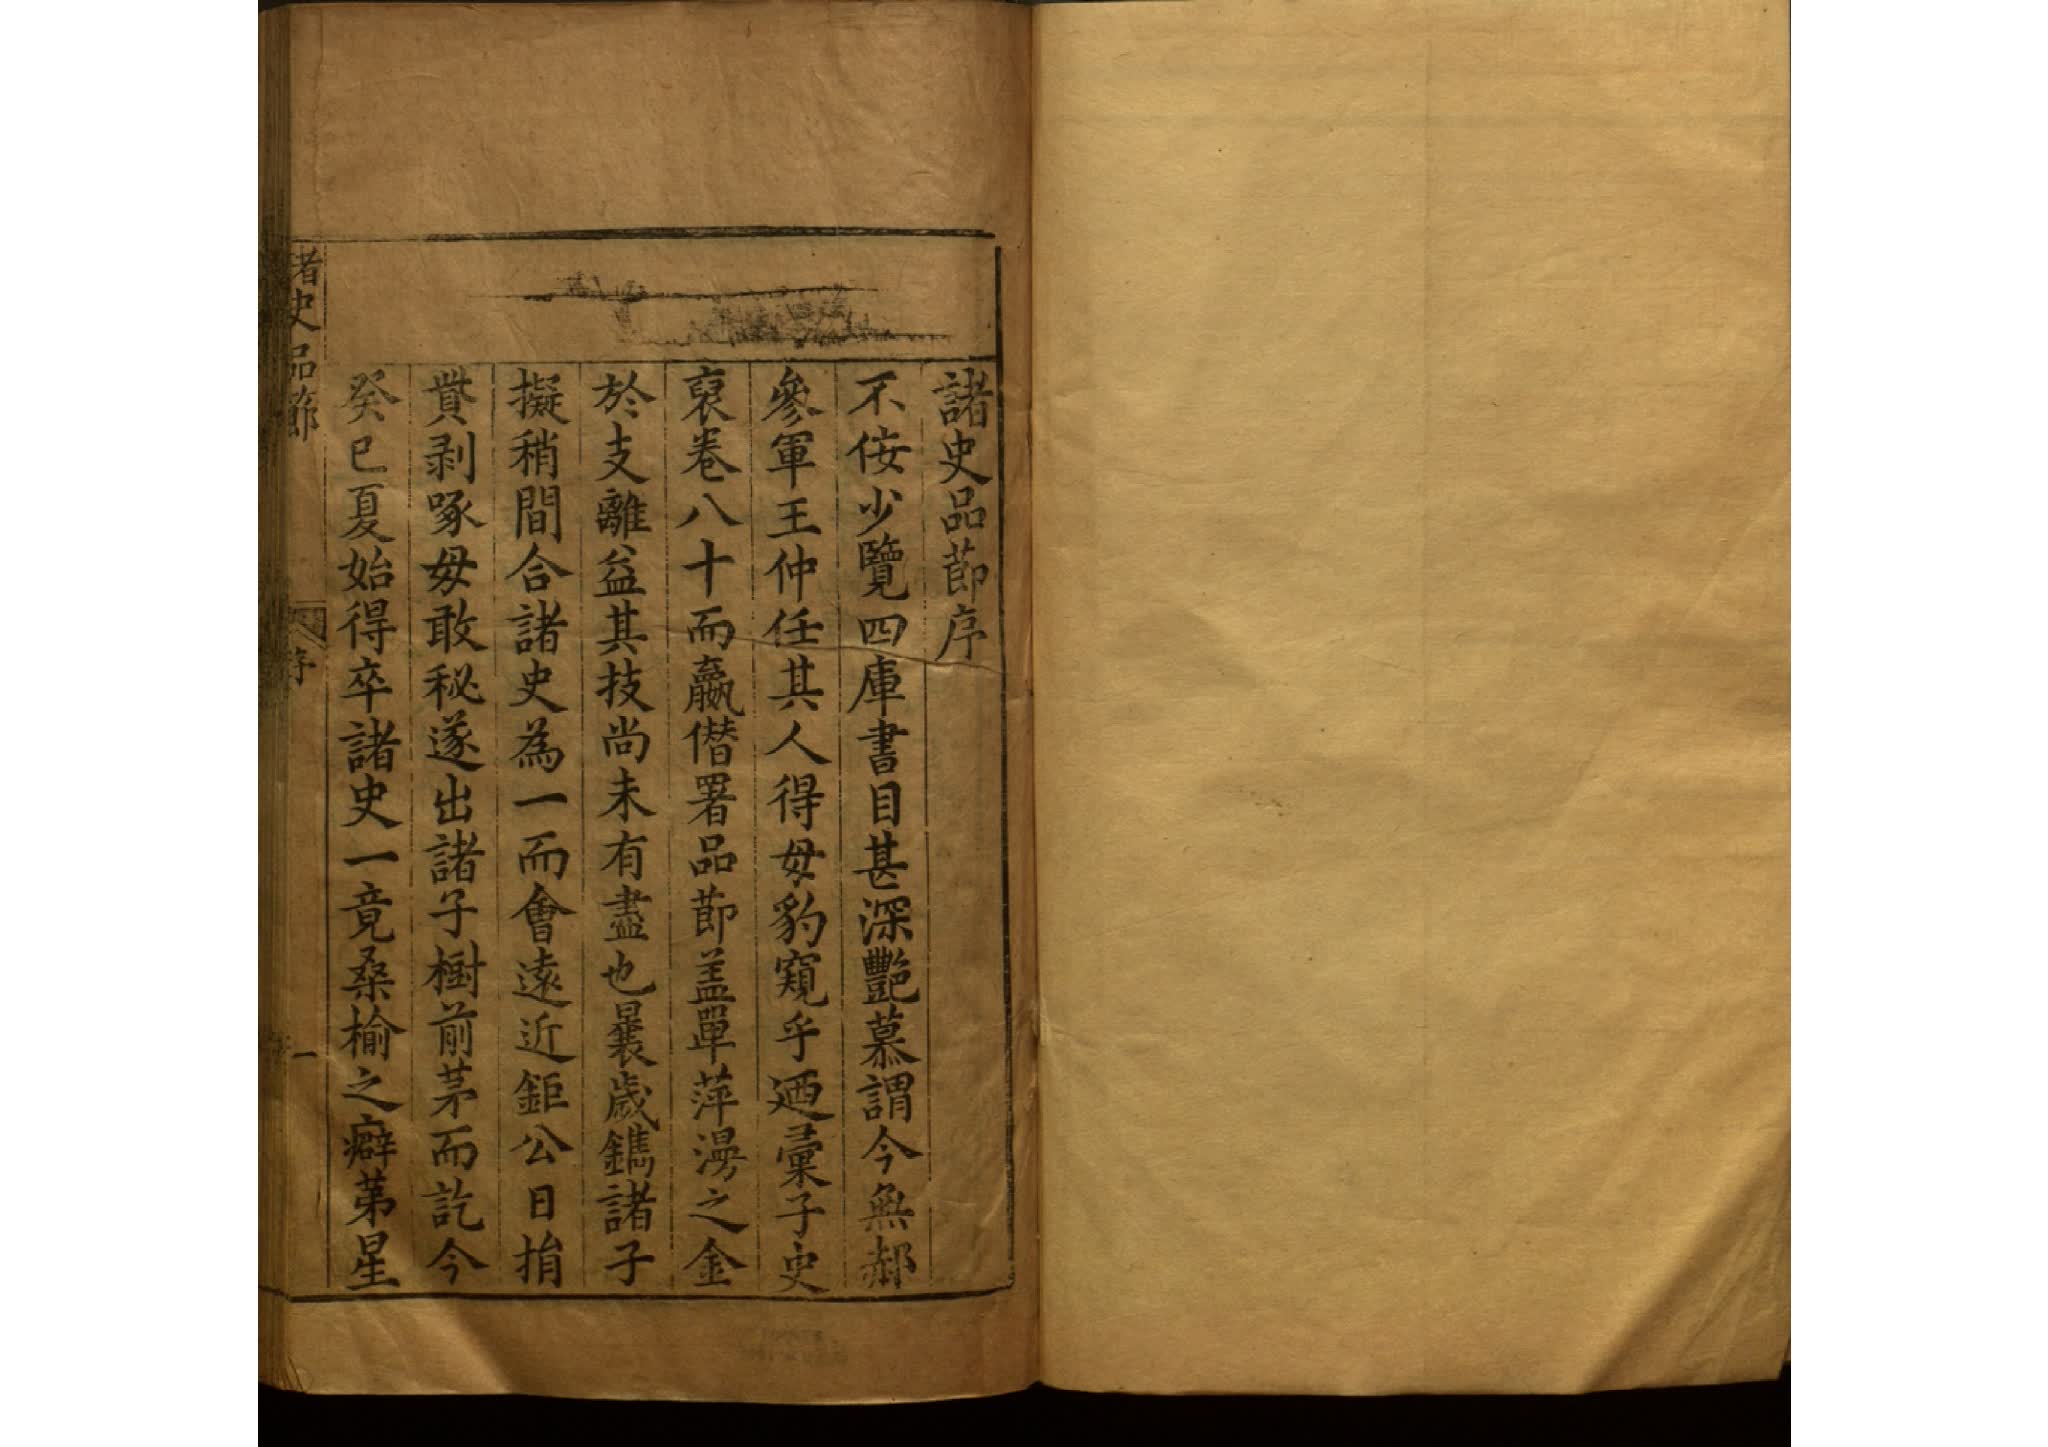 諸史品莭序
不佞少覽四庫書目甚深艷慕謂今無郝
參軍王仲任其人得毋豹窺乎迺彚子史
裒卷八十而嬴僭署品莭盖單萍漫之金
於支離益其技尚未有盡也曩歳鐫諸子
擬稍間合諸史為一而會遠近鉅公日捐
貲剥啄毋敢秘遂出諸子樹前茅而訖今
癸巳夏始得卒諸史一竟桑榆之癖苐星
諸史品節
序
一